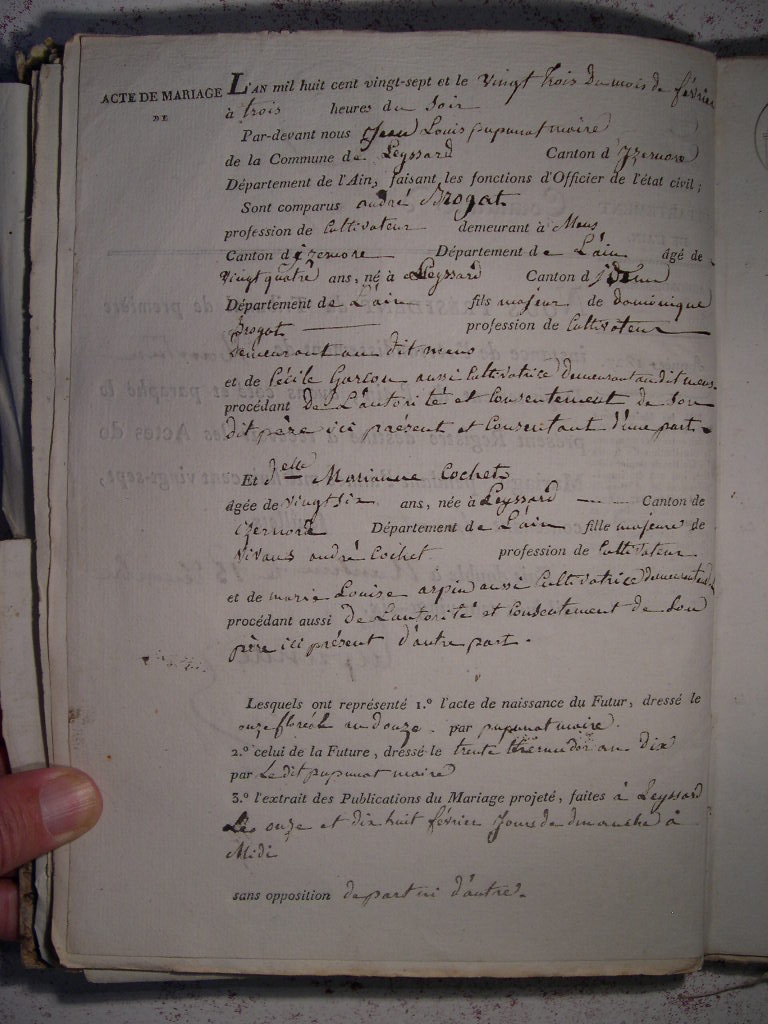 ACTE DE MARIAGE
DE
L'AN mil huit cent vingt-sept et le vingt trois du mois de février
à trois heures du soir
Par-devant nous Jean Louis pupunat maire
de la Commune de Leyssard Canton d'Izernore
Département de l'Ain, faisant les fonctions d'Officier de l'état civil;
Sont comparus andré Brogat
profession de Cultivateur demeurant à Mens
Canton d'izernore Département de L'ain âgé de
vingt quatre ans, né à Leyssard Canton d'idem
Département de L'ain fils majeur de dominique
Brogat profession de Cultivateur
demeurant au dit mens
et de Cécile Garcon aussi Cultivatrice demeurant au dit mens
procédant de L'autorité et Consentement de Son
dit père ici présent et Consentant d'une part.
Et Delle Marianne Cochet
âgée de vingt six ans, née à Leyssard Canton de
izernore Département de L'ain fille majeure de
Vivans andré Cochet profession de Cultivateur
et de marie Louise arpin aussi Cultivatrice demeurants
procédant aussi de L'autorité et Consentement de Son
père ici présent d'autre part.
Lesquels ont représenté 1.º l'acte de naissance du Futur, dressé le
onze floréal an douze. par pupunat maire.
2.º celui de la Future, dressé le trente thermidor an dix
par Le dit pupunat maire
3.º l'extrait des Publications du Mariage projeté, faites à Leyssard
Les onze et dix huit février Jours de dimanche à
Midi
sans opposition de part ni d'autre.